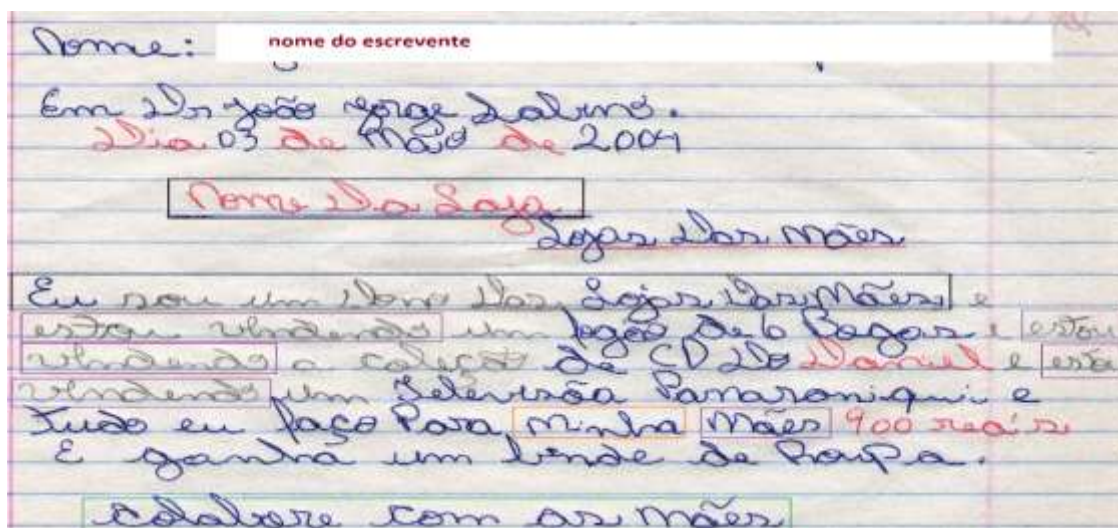 Nome: nome do escrevente
Em Dr João Jorge Sabino.
Dia 03 de Maio de 2004
Nome Da Loja
Lojas Das Mães
Eu sou um Dono Das Lojas Das Mães e
estou vendendo um fogão de 6 Bogas e estou
vendendo a coleção de CD Do Daniel e esto
vendendo um Televisõa Panaroniqui e
tudo eu faço Para minha Mães 900 reais
E ganha um brinde de Roupa.
colabore com as mães